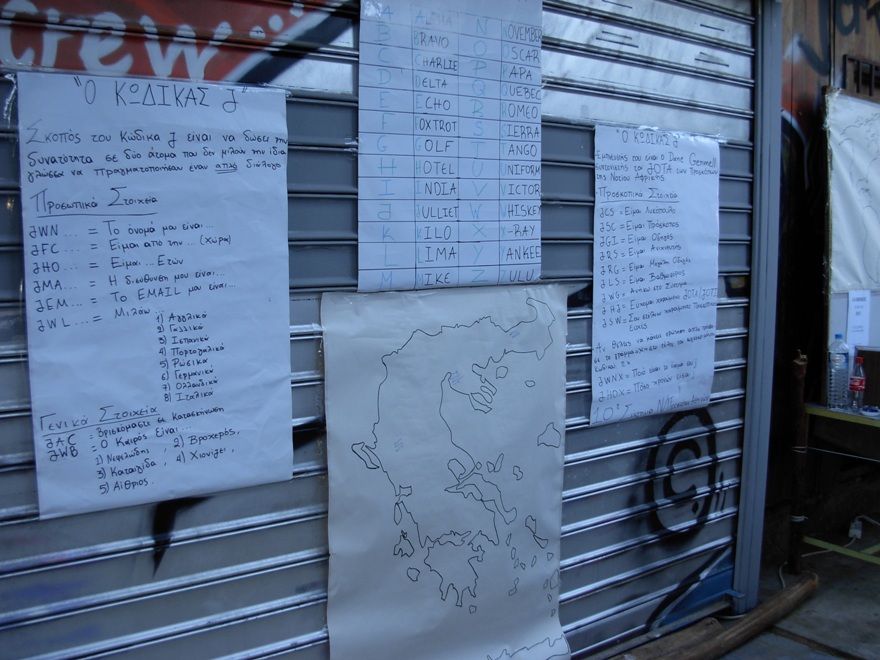 crew
"Ο ΚΩΔΙΚΑΣ J"
Σκοπός του Κώδικα J είναι να δώσει την
δυνατότητα σε δύο άτομα που δεν μιλούν την ίδια
γλώσσα να πραγματοποιήσουν έναν απλό διάλογο
Προσωπικά Στοιχεία
JWN... = Το όνομά μου είναι...
JFC... = Είμαι από την... (χώρα)
JHO... = Είμαι... Ετών
JMA... = Η διεύθυνση μου είναι...
JEM... = Το EMAIL μου είναι...
JWL... = Μιλάω
1) Αγγλικά
2) Γαλλικά
3) Ισπανικά
4) Πορτογαλικά
5) Ρώσικα
6) Γερμανικά
7) Ολλανδικά
8) Ιταλικά
Γενικά Στοιχεία
JAC = Βρισκόμαστε σε Κατασκήνωση
JWB = Ο Καιρός Είναι...
1) Νεφελώδης, 2) Βροχερός,
3) Καταιγίδα, 4) Χιονίζει,
5) Αίθριος.
A ALPHA N NOVEMBER
B BRAVO O OSCAR
C CHARLIE P PAPA
D DELTA Q QUEBEC
E ECHO R ROMEO
F FOXTROT S SIERRA
G GOLF T TANGO
H HOTEL U UNIFORM
I INDIA V VICTOR
J JULLIET W WHISKEY
K KILO X X-RAY
L LIMA Y YANKEE
M MIKE Z ZULU
"Ο ΚΩΔΙΚΑΣ J
Εμπνευστής του είναι ο Dave Gemmell
συντονιστής του JOTA των Προσκόπων
της Νοτίου Αφρικής
-Προσκοπικά Στοιχεία
JCS = Είμαι Λυκόπουλο
JSC = Είμαι Πρόσκοπος
JGI = Είμαι Οδηγός
JRS = Είμαι Ανιχνευτής
JRG = Είμαι Μεγάλη Οδηγός
JLS = Είμαι Βαθμοφόρος
JWG =
JHJ = Εύχομαι χαρούμενο JOTA/JOTI
JSW = Σου στέλνω χαιρετισμούς Προσκοπικές
ευχές
Αν θέλεις να κάνεις ερώτηση απλώς
κώδικα
JWNX = Ποιό είναι το όνομά σου;
JHOX = Πόσο χρονών είσαι;
10ο Σύστημα